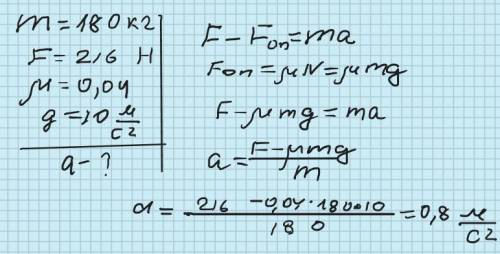 m=180 кг
F=216 Н
μ=0,04
g=10 м/с²
a-?
F-Fоп=ma
Fоп=μN=μmg
F-μmg=ma
a=(F-μmg)/m
a=(216-0,04·180·10)/180=0,8 м/с²